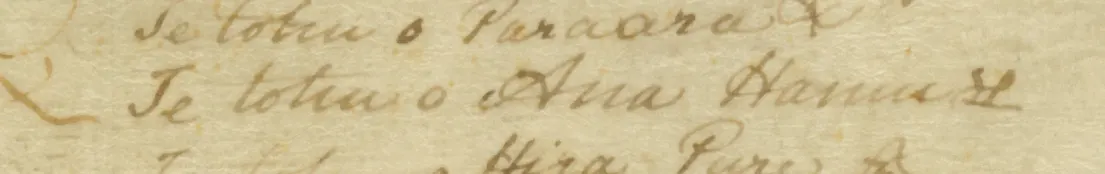 Te tohu o Paraara x
Te tohu o Ana Hamu x
Te tohu o Hira Pure x